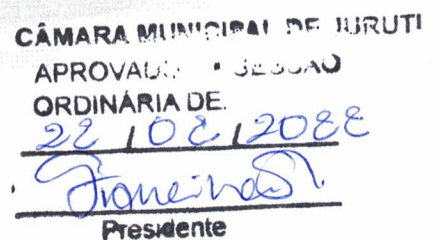 CÂMARA MUNICIPAL DE JURUTI
APROVADO SESSÃO
ORDINÁRIA DE.
22 / 02 / 2022
Presidente